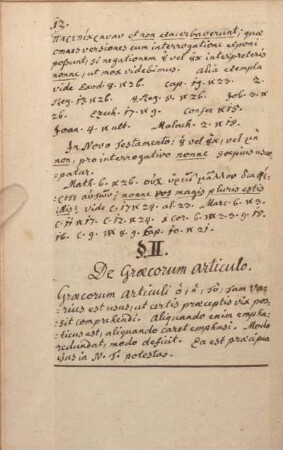 12.
παρεπίκραναν et non exacerbaverunt; quæ
omnes versiones cum interrogatione exponi
possunt; si negationem ἢ vel ἢχ interpreteris
nonne, ut mox videbimus. Alia exempla
vide Exod. 8. ℣ 26. Cap. 19. ℣ 23. 2.
Reg. 17. ℣ 26. 4 Reg. 5. ℣ 26. Job. 3. ℣
26. Ezech. 17. ℣ 9. Confer ℣ 15.
Joan. 4. ℣ ult. Malach. 2. ℣ 15.
In Novo Testamento; ἢ vel ἢχ; vel μὴ
non, pro interrogativo nonne sæpius usur,
patur.
Math. 6. ℣ 26. οὐχ ὑμεῖς μᾶλλον διαφέ,
ρετε αὐτῶν; nonne vos magis pluris estis
illis; vide c. 17 ℣ 24. al. 23. Marc. 6. ℣ 3.
c. 11 ℣ 17. c. 12. ℣ 24. 1 Cor. 6. ℣ 2. 3. 9. 15.
16. c. 9. ℣ 8. 9. Cap. 10. ℣ 21.
§. II.
De Græcorum Articulo.
Græcorum Articuli ὁ, ἡ, τὸ, tam va,
rius est usus, ut certis præceptis vix pos,
sit comprehendi. Aliquando enim empha,
ticus est; aliquando caret emphasi. Modo
redundat; modo deficit. Ea est præcipua
ejus in N. T. potestas.